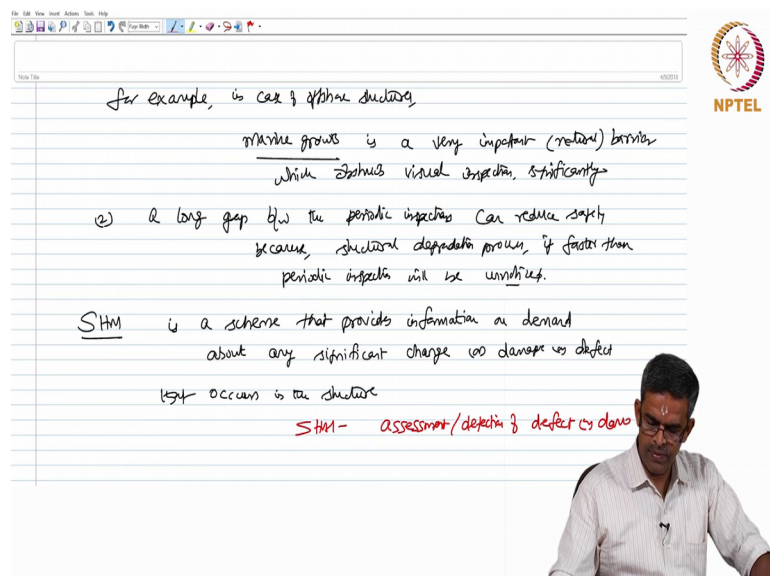 File Edit View Insert Actions Tools Help
Page Width
Note Title
4/9/2018
NPTEL
for example, in case of offshore structures,
marine growth is a very important (natural) barrier
which obstructs visual inspection, significantly
(2) a long gap b/w the periodic inspections can reduce safety
because, structural degradation process, if faster than
periodic inspection will be unnoticed.
SHM is a scheme that provides information on demand
about any significant change (or) damage (or) defect
that occurs in the structure
SHM - assessment/detection of defect (or) dama